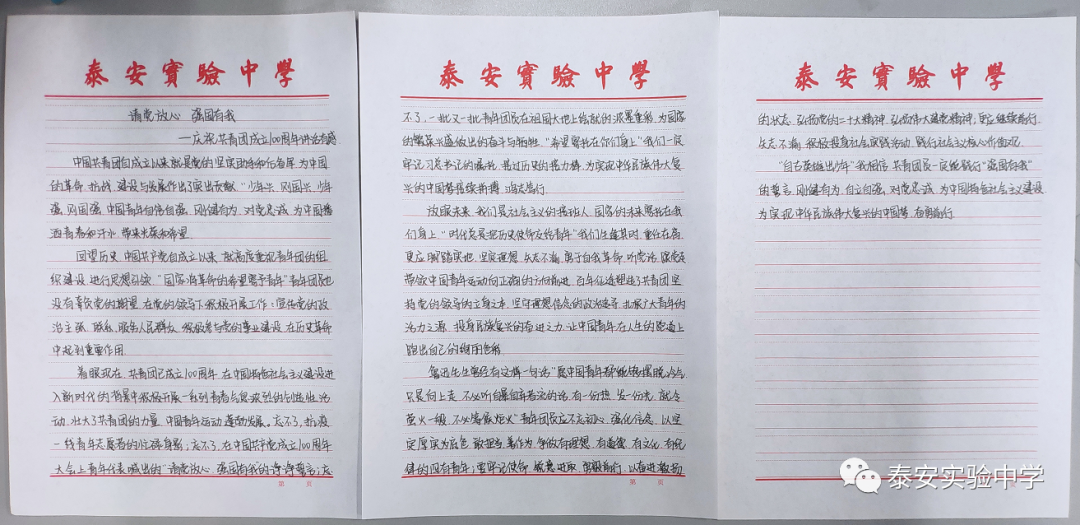 泰安實驗中學
请党放心 强国有我
—庆祝共青团成立100周年讲话有感
中国共青团自成立以来就是党的坚实助手和后备军,为中国
的革命、抗战、建设与发展作出了突出贡献。“少年兴,则国兴,少年
强,则国强”中国青年自信自强,刚健有为,对党忠诚,为中国播
洒青春和汗水,带来光荣和希望。
回望历史,中国共产党自成立以来,就高度重视青年团的组
织建设,进行思想引领,“国家将革命的希望寄予青年”青年团员也
没有辜负党的期望,在党的领导下积极开展工作:宣传党的政
治主张,联系、服务人民群众,积极参与党的事业建设,在历史革命
中起到重要作用。
着眼现在,共青团已成立100周年,在中国特色社会主义建设进
入新时代的背景中积极开展一系列青春气息浓烈的创造性活
动,壮大了共青团的力量,中国青年运动蓬勃发展。忘不了,抗疫
一线青年志愿者的忙碌身影;忘不了,在中国共产党成立100周年
大会上青年代表喊出的“请党放心,强国有我”的铮铮誓言;忘
第 页
泰安實驗中學
不了,一批又一批青年团员在祖国大地上给献的浓墨重彩,为国家
的繁荣兴盛做出的奋斗与牺牲。“希望寄托在你们身上”我们一定
牢记习总书记的嘱托,接过历史的接力棒,为实现中华民族伟大复
兴的中国梦接续拼搏,踏志前行。
放眼未来,我们是社会主义的接班人,国家的未来寄托在我
们身上。“时代总是把历史使命交给青年”我们生逢其时,重任在肩,
更应脚踏实地,坚定理想,矢志不渝,勇于自我革命,听党话,跟党走
带领中国青年运动向正确的方向前进。百年征途塑造了共青团坚
持党的领导的立身之本,坚守理想信念的政治之魂,扎根了大青年的
活力之源,投身民族复兴的奋进之力,让中国青年在人生的跑道上
跑出自己的绚丽色彩。
鲁迅先生曾经有这样一句话“愿中国青年都能够摆脱冷气,
只是向上走,不必听自暴自弃者流的话。有一份热,发一份光,就令
萤火一般,不必等候炬火”青年团员应不忘初心,强化信念,以坚
实厚实为底色,敢担当,善作为,争做有理想、有道德、有文化、有纪
律的四有青年;要牢记使命,锐意进取,勇毅前行,以奋进激扬
第 页
泰安實驗中學
的状态,弘扬党的二十大精神,弘扬伟大建党精神,坚定继续前行,
矢志不渝,积极投身社会实践活动,践行社会主义核心价值观。
“自古英雄出少年”我相信,共青团员一定能践行“强国有我”
的誓言,刚健有为,自立自强,对党忠诚,为中国特色社会主义建设
为实现中华民族伟大复兴的中国梦,奋勇前行。
泰安实验中学